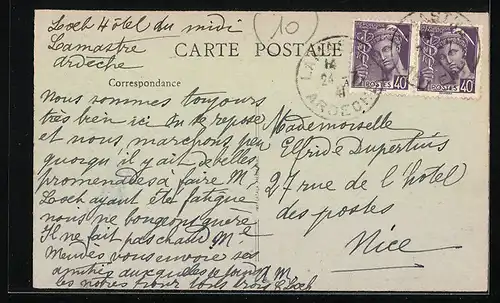 Loch Hôtel du midi
Lamastre
ardèche
10
CARTE POSTALE
Correspondance
LAMASTRE
14
24
41
ARDECHE
POSTES 40
POSTES 40
Nous sommes toujours
très bien ici on se repose
et nous marchons peu
quoiqu'il y ait de belles
promenades à faire M.
Loch ayant été fatigué
nous ne bougeons guère
Il ne fait pas chaud Mˡᵉ
Meudes vous envoie ses
amitiés auxquelles se joignent
les nôtres pour tous trois M M Loch
Mademoiselle
Elfride Dupertuis
27 rue de l'hôtel
des postes
Nice